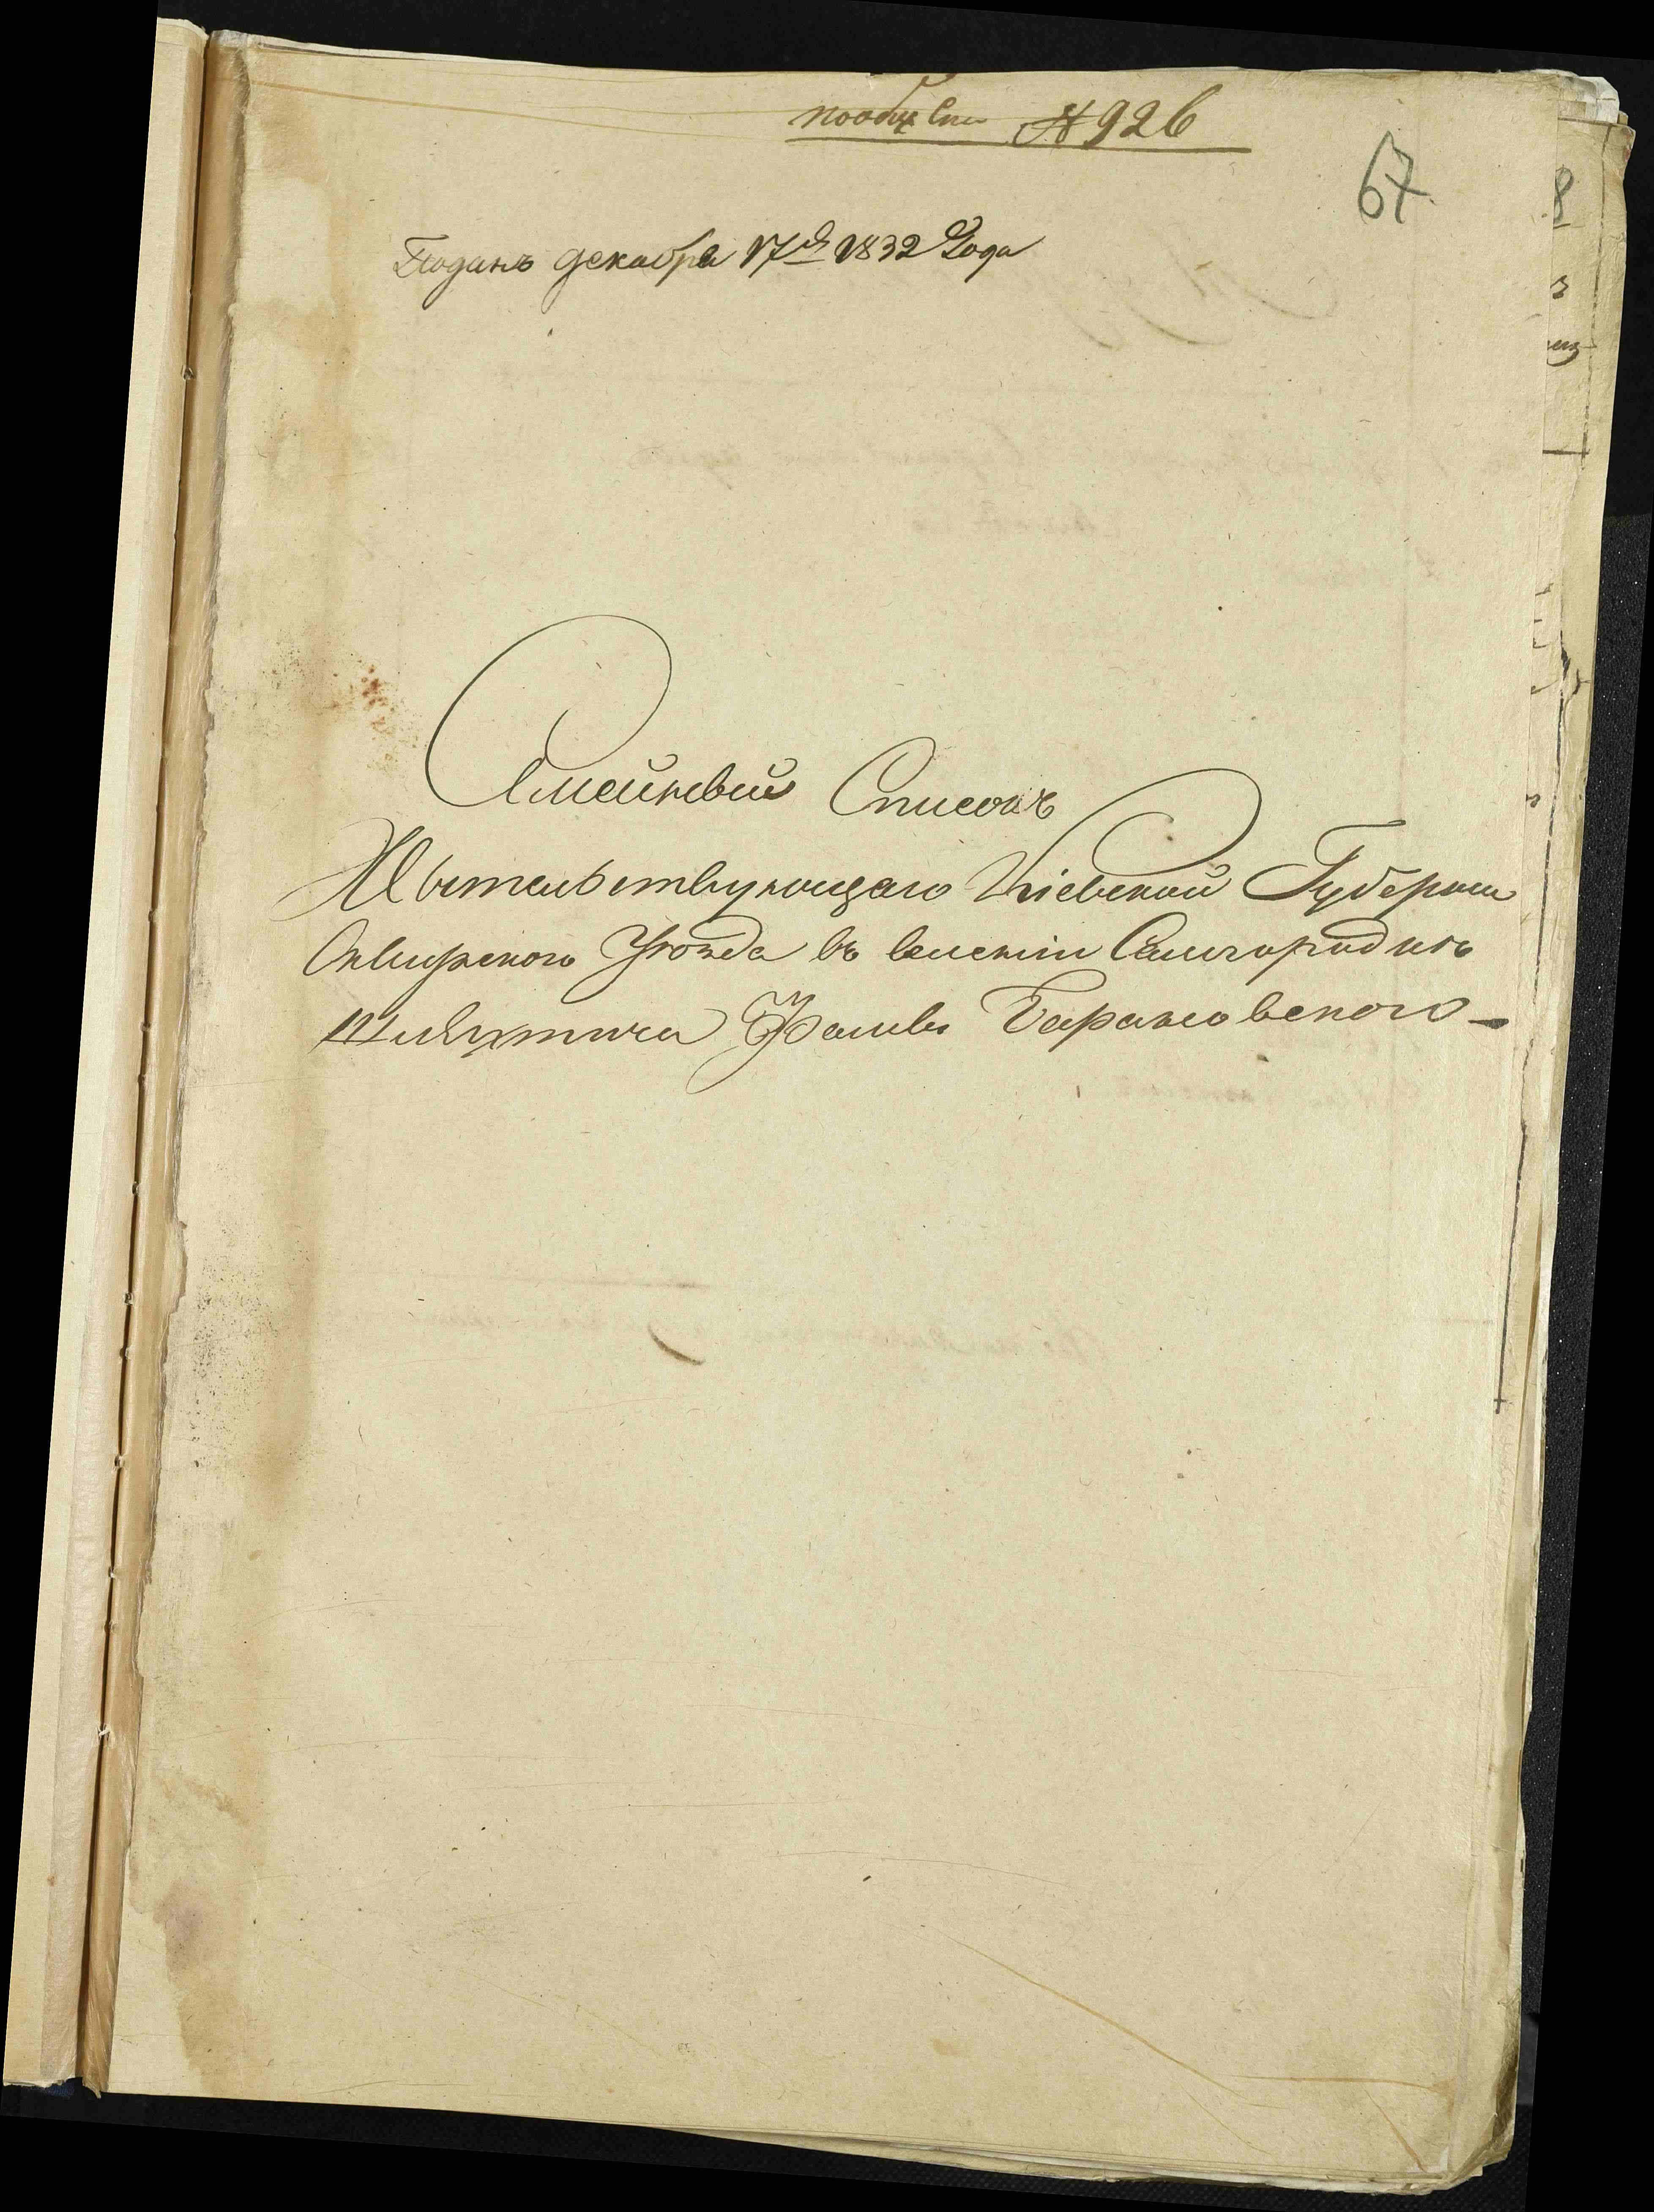 пообщ спи № 926
67
Поданъ декабря 17д 1832 Года
Семейный Список
Жительствующаго Кіевской Губерніи
Сквирского Уезда въ селеніи Самгородке
Шляхтича Фомы Барановского